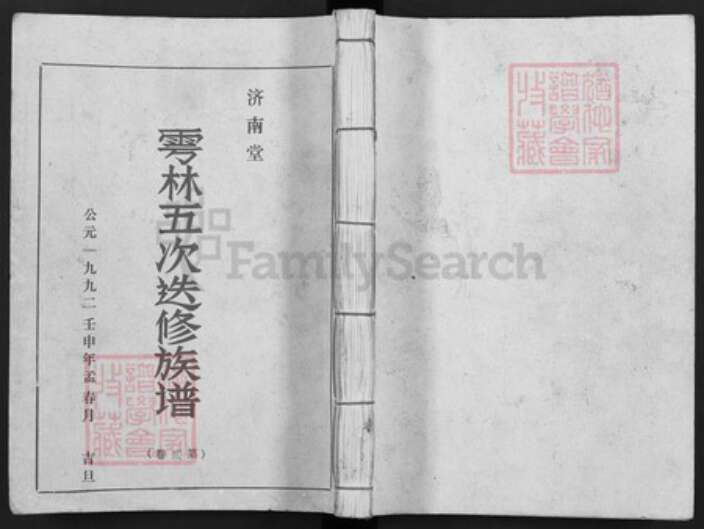 济南堂
雩林五次迭修族谱
（第弍卷）
公元一九九二壬申年孟春月 吉旦
FamilySearch